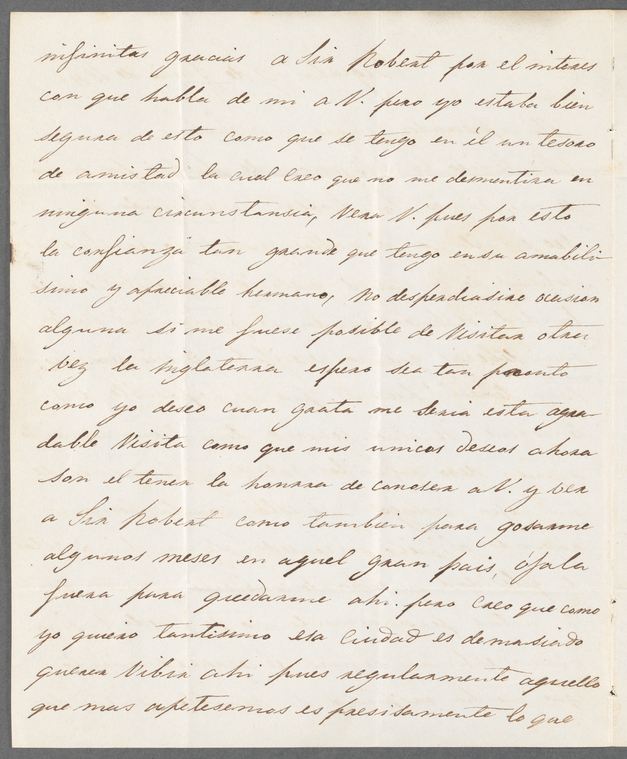 infinitas gracias a Sir Robert por el interes
con que habla de mi a V. pero yo estaba bien
segura de esto como que se tengo en él un tesoro
de amistad la cual creo que no me desmentira en
ninguna circunstansia, Vera V. pues por esto
la confianza tan grande que tengo en su amabili-
simo y apreciable hermano, no desperdiasire ocasion
alguna si me fuese posible de Visitar otra
vez la Inglaterra espero sea tan pronto
como yo deseo cuan grata me seria esta agra-
dable Visita como que mis unicos deseos ahora
son el tener la honrra de conoser a V. y ver
a Sir Robert como tambien para gosarme
algunos meses en aquel gran pais, ójala
fuera para quedarme ahi. pero creo que como
yo quiero tantisimo esa Ciudad es demasiado
querer Vibir ahi pues regularmente aquello
que mas apetesemos es presisamente lo que